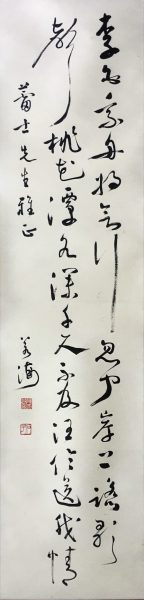 李白乘舟将欲行忽闻岸上踏歌
声桃花潭水深千尺不及汪伦送我情
蕾士先生雅正
若海